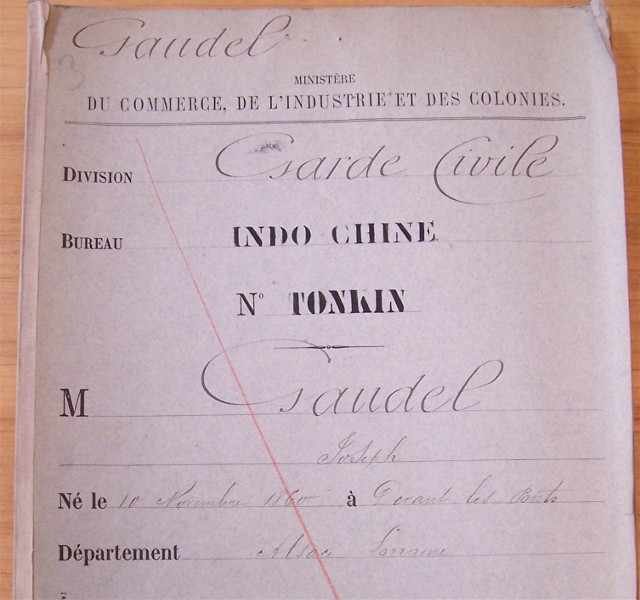 Gaudel
3
MINISTÈRE
DU COMMERCE, DE L'INDUSTRIE ET DES COLONIES.
DIVISION Garde Civile
BUREAU INDO CHINE
N° TONKIN
M Gaudel
Joseph
Né le 10 Novembre 1860 à les
Département Alsace Lorraine